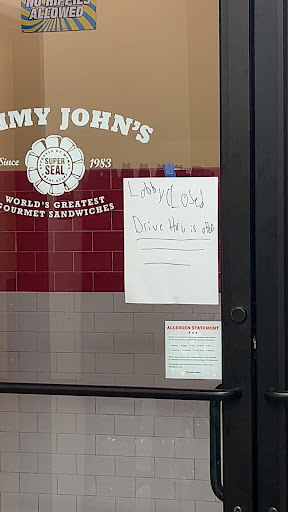 NO HIPPIES
ALLOWED
MY JOHN'S
Since
SUPER
SEAL
1983
WORLD'S GREATEST
GOURMET SANDWICHES
Lobby Closed
Drive thru is open
ALLERGEN STATEMENT